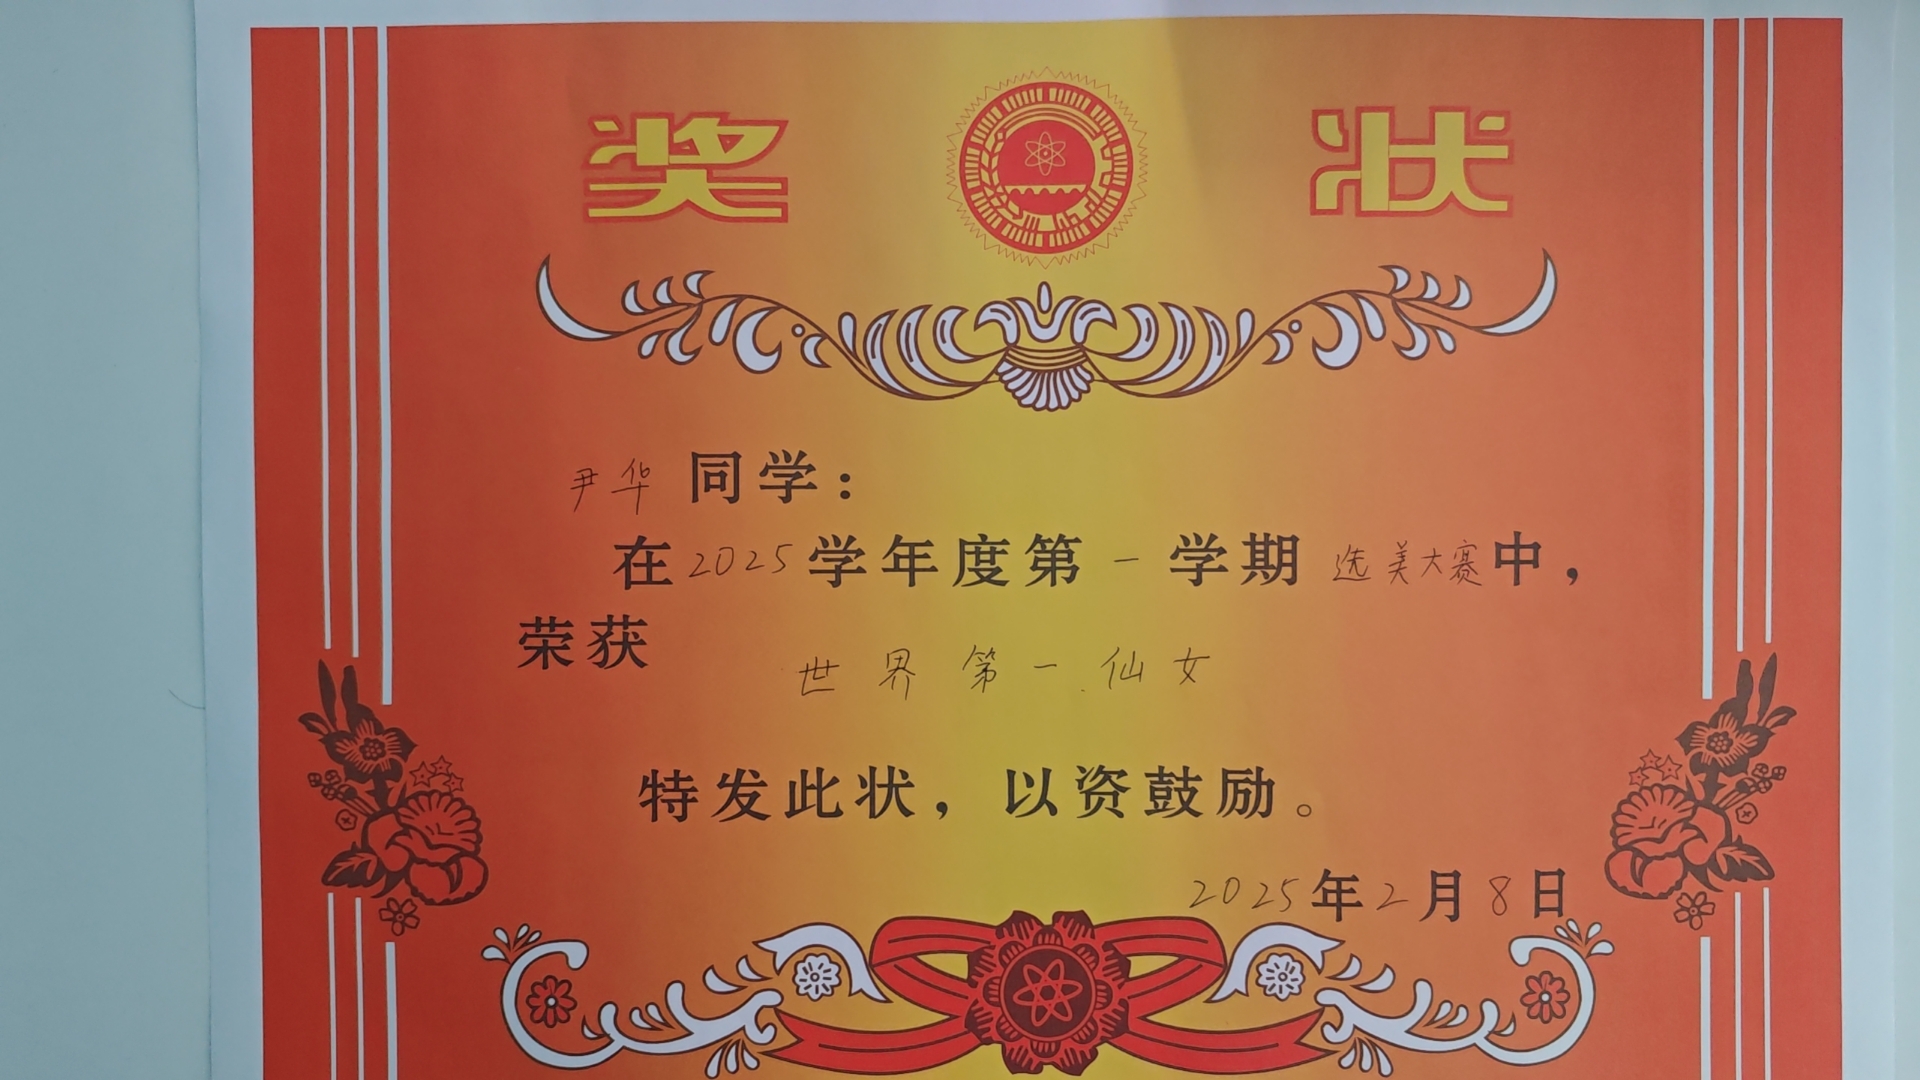 奖状
尹华同学：
在2025学年度第一学期选美大赛中，
荣获
世界第一仙女
特发此状，以资鼓励。
2025年2月8日